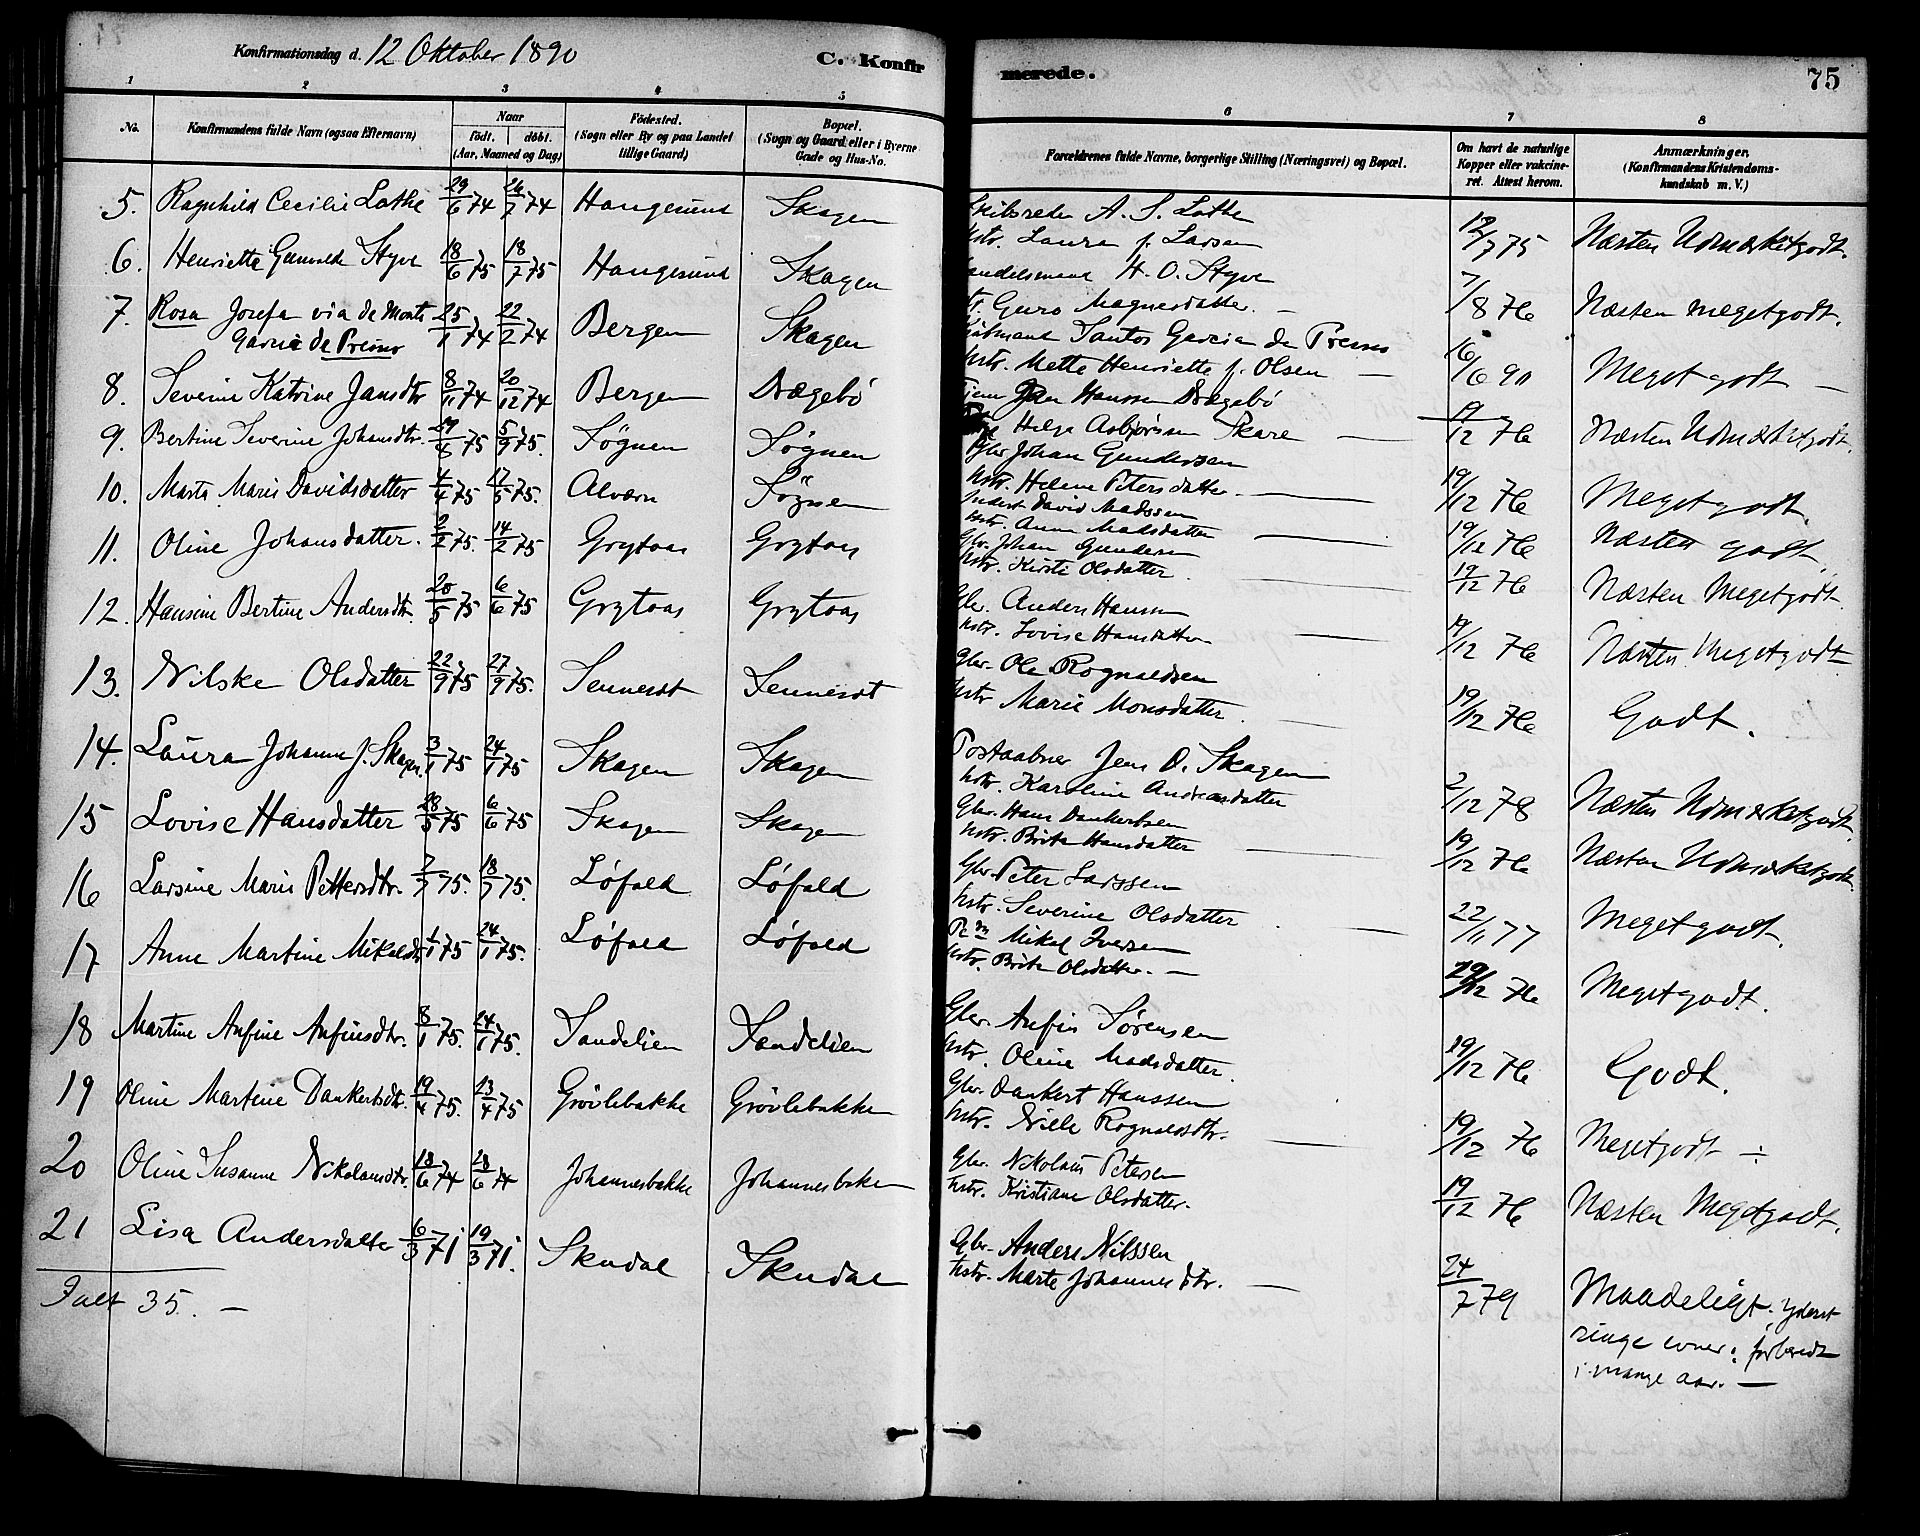 Konfirmationsdag d. 12 Oktober 1890
C. Konfirmerede.
75
1 2 3 4 5 6 7 8
No.
Konfirmandens fulde Navn (ogsaa Efternavn)
Naar
født. døbt.
(Aar, Maaned og Dag)
Fødested.
(Sogn eller By og paa Landet
tillige Gaard)
Bopæl.
(Sogn og Gaard eller i Byerne
Gade og Hus-No.
Forældrenes fulde Navne, borgerlige Stilling (Næringsvei) og Bopæl.
Om havt de naturlige
Kopper eller vakcine-
ret. Attest herom.
Anmærkninger.
(Konfirmandens Kristendoms-
kundskab m. V.)
5. Ragnhild Cecilie Lothe 29/6 74 26/7 74 Haugesund Skagen Skibsreder A. S. Lothe
Hstr. Laura f. Larsen 12/7 75 Næsten Udmærketgodt.
6. Henriette Gunvalda Styve 18/6 75 18/7 75 Haugesund Skagen Handelsmand H. O. Styve
Guro Magnesdatter. — 7/8 76 Næsten megetgodt.
7. Rosa Josefa via de Monte
Garcia de Presno 25/1 74 22/2 74 Bergen Skagen Kjøbmand Santos Garcia de Presno
Hstr. Mette Henriette f. Olsen — 16/6 90 Meget godt —
8. Severine Katrine Jansdtr 8/11 74 20/12 74 Bergen Drægebø Tjen Jan Hanssen Drægebø
Helga Asbjørnsen Skare — 19/12 76 Næsten Udmærketgodt.
9. Bertine Severine Johansdtr. 29/8 75 5/9 75. Søgnen Søgnen Gbr Johan Gundersen
Hstr. Helene Petersdatter. — 19/12 76 Megetgodt.
10. Marta Marie Davidsdatter 4/4 75 17/5 75. Alvern Søgnen Inderst David Madssen
Hstr. Anna Madsdatter — 19/12 76 Næsten godt.
11. Oline Johansdatter. 2/2 75. 14/2 75 Grytaas Grytaas Gbr. Johan Gundersen
Hstr. Kirsti Olsdatter. 19/12 76 Næsten Megetgodt.
12. Hansine Bertine Andersdtr. 20/5 75 6/6 75 Grytaas Grytaas Gbr. Anders Hanssen
Hstr. Lovise Hansdatter — 19/12 76 Næsten Megetgodt.
13. Nilske Olsdatter 22/9 75 27/9 75. Sennesøt Sennesøt Gbr. Ole Rognaldsen
Hstr Marie Monsdatter. 19/12 76 Godt.
14. Laura Johanne J. Skagen. 3/1 75 24/1 75 Skagen Skagen Postaabner Jens O. Skagen
Hstr. Karoline Andreasdatter 2/12 78 Næsten Udmærketgodt.
15 Lovise Hansdatter 28/5 75 6/6 75 Skagen Skagen Gbr. Hans Dankertsen
Hstr. Brita Hansdatter — 19/12 76 Næsten Udmærketgodt.
16 Larsine Marie Pettersdtr. 7/7 75. 18/7 75. Løfald Løfald Gbr. Peter Larssen
Hstr. Severine Olsdatter 22/11 77 Megetgodt.
17 Anne Martine Mikaldtr 1/1 75 24/1 75. Løfald Løfald Pm Mikal Iversen
Hstr. Brita Olsdatter. — 19/12 76 Megetgodt.
18 Martine Anfine Anfinsdtr. 8/1 75. 24/1 75. Sandelien Sandelien Gbr. Anfin Sørensen
Hstr. Oline Madsdatter. 19/12 76 Godt.
19 Oline Martine Dankertsdtr. 19/4 75. 23/4 75 Grövlebakke Grövlebakken Gbr. Dankert Hanssen
Hstr. Nille Rognaldsdtr. — 19/12 76 Megetgodt ÷
20 Oline Susanne Nikolausdtr. 18/6 74 28/6 74 Johannesbakke Johannesbaken Gbr. Nikolaus Petersen
Hstr. Kristiane Olsdatter. 19/12 76 Næsten Megetgodt.
21 Lisa Andersdatter 6/3 71 19/3 71. Skudal Skudal Gbr. Anders Nilssen
Hstr. Marta Johannesdtr. — 24/7 79 Maadeligt; yderst
ringe evner; forberedt
i mange aar. —
Ialt 35. —